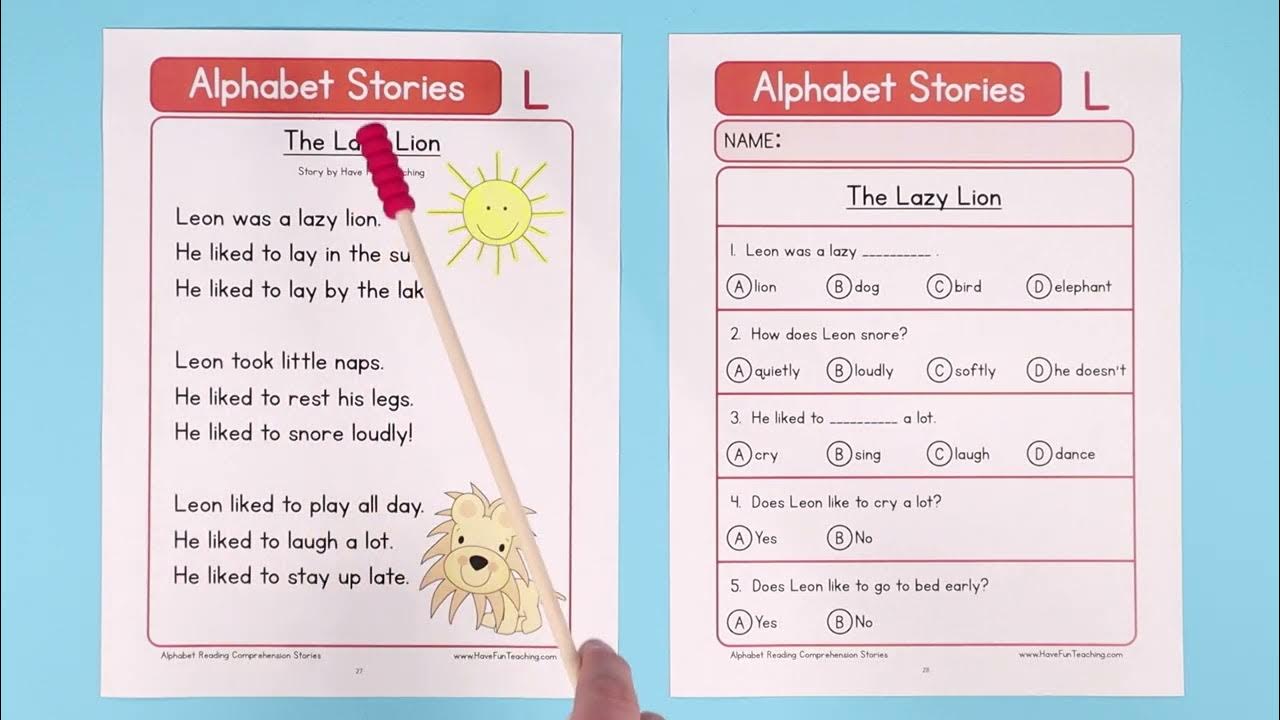 Alphabet Stories L
The La Lion
Story by Have ching
Leon was a lazy lion.
He liked to lay in the su
He liked to lay by the lak
Leon took little naps.
He liked to rest his legs.
He liked to snore loudly!
Leon liked to play all day.
He liked to laugh a lot.
He liked to stay up late.
Alphabet Reading Comprehension Stories www.HaveFunTeaching.com
27
Alphabet Stories L
NAME:
The Lazy Lion
1. Leon was a lazy __________ .
A lion B dog C bird D elephant
2. How does Leon snore?
A quietly B loudly C softly D he doesn't
3. He liked to __________ a lot.
A cry B sing C laugh D dance
4. Does Leon like to cry a lot?
A Yes B No
5. Does Leon like to go to bed early?
A Yes B No
Alphabet Reading Comprehension Stories www.HaveFunTeaching.com
28